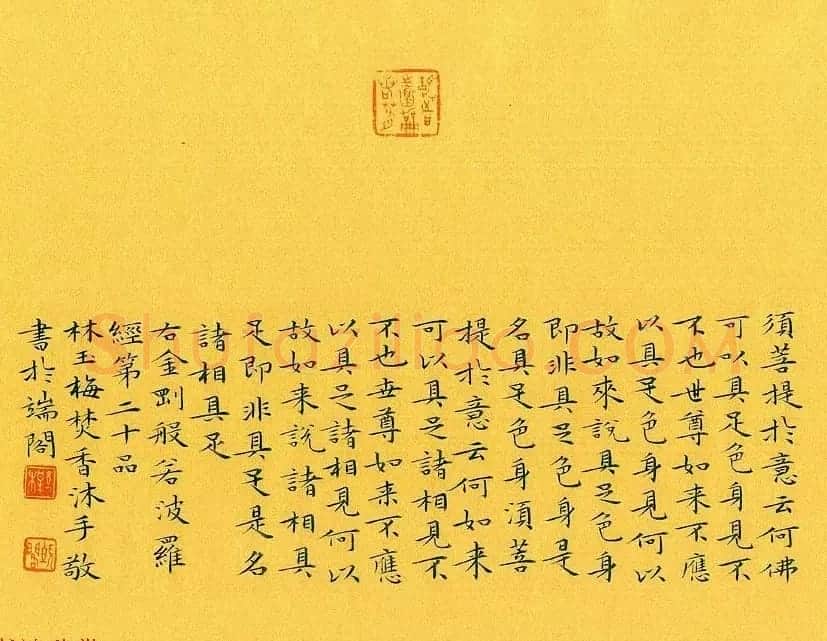 須菩提於意云何佛
可以具足色身見不
不也世尊如来不應
以具足色身見何以
故如來說具足色身
即非具足色身是
名具足色身須菩
提於意云何如来
可以具足諸相見不
不也世尊如来不應
以具足諸相見何以
故如来説諸相具
足即非具足是名
諸相具足
右金剛般若波羅
經第二十品
林玉梅焚香沐手敬
書於端閣
Shufaziliao.COM